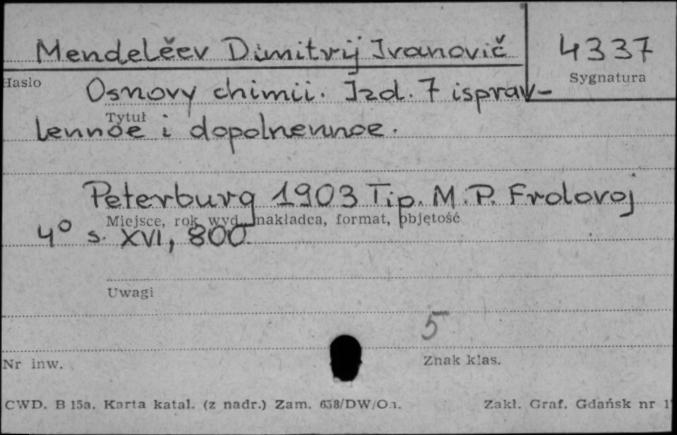 Mendelěev Dimitrij Ivanovič 4337
Hasło Sygnatura
Osnovy chimii. Izd. 7 isprav-
Tytuł
lennoe i dopolnennoe.
Peterburg 1903 Tip. M.P. Frolovoj
Miejsce, rok wyd., nakładca, format, objętość
4° s. XVI, 800.
Uwagi
5
Nr inw. Znak klas.
CWD. B 15a. Karta katal. (z nadr.) Zam. 658/DW/ Zakł. Graf. Gdańsk nr